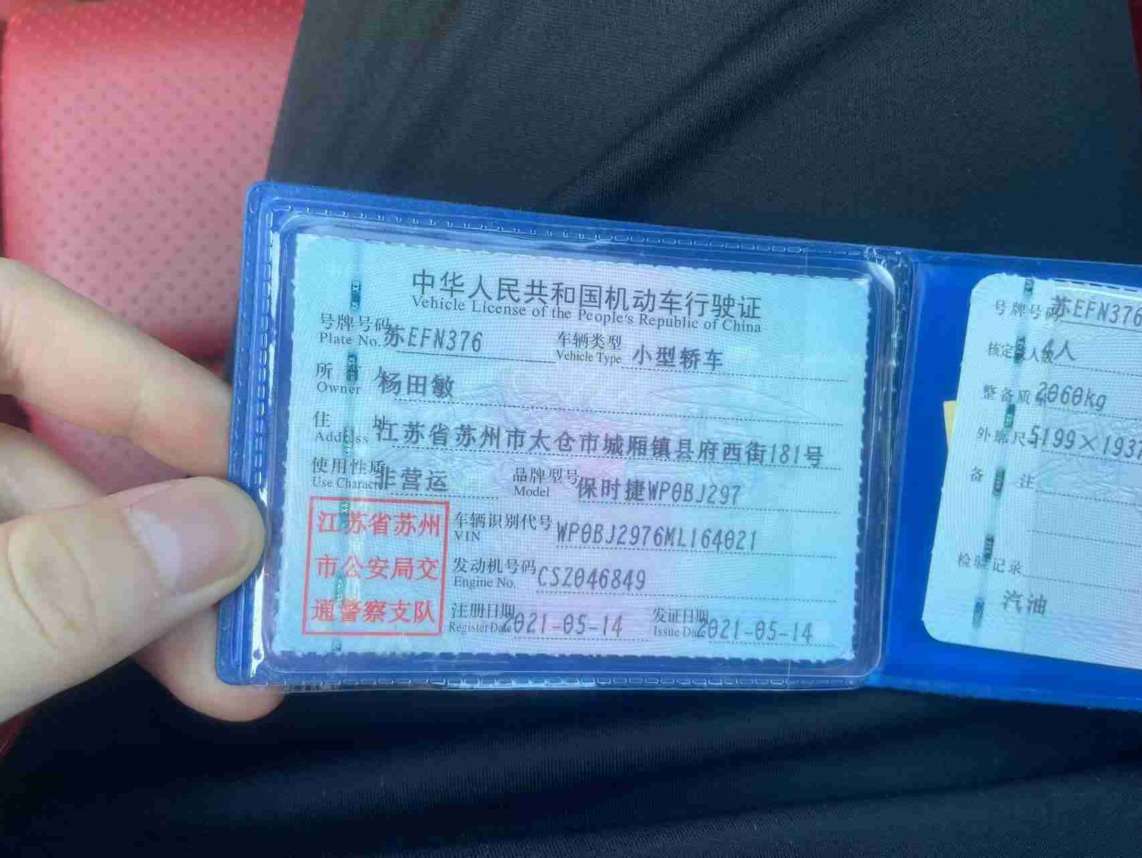 中华人民共和国机动车行驶证
Vehicle License of the People's Republic of China
号牌号码 苏EFN376 车辆类型 小型轿车
Plate No. Vehicle Type
所 人 杨田敏
Owner
住 址 江苏省苏州市太仓市城厢镇县府西街181号
Address
使用性质 非营运 品牌型号 保时捷WP0BJ297
Use Charact Model
江苏省苏州
市公安局交
通警察支队
车辆识别代号 WP0BJ2976ML164021
VIN
发动机号码 CSZ046849
Engine No.
注册日期 2021-05-14 发证日期 2021-05-14
Register Date Issue Date
号牌号码 苏EFN376
核定 人数 4人
整备质 2060kg
外廓尺 5199×1937
备 注
检验记录
汽油